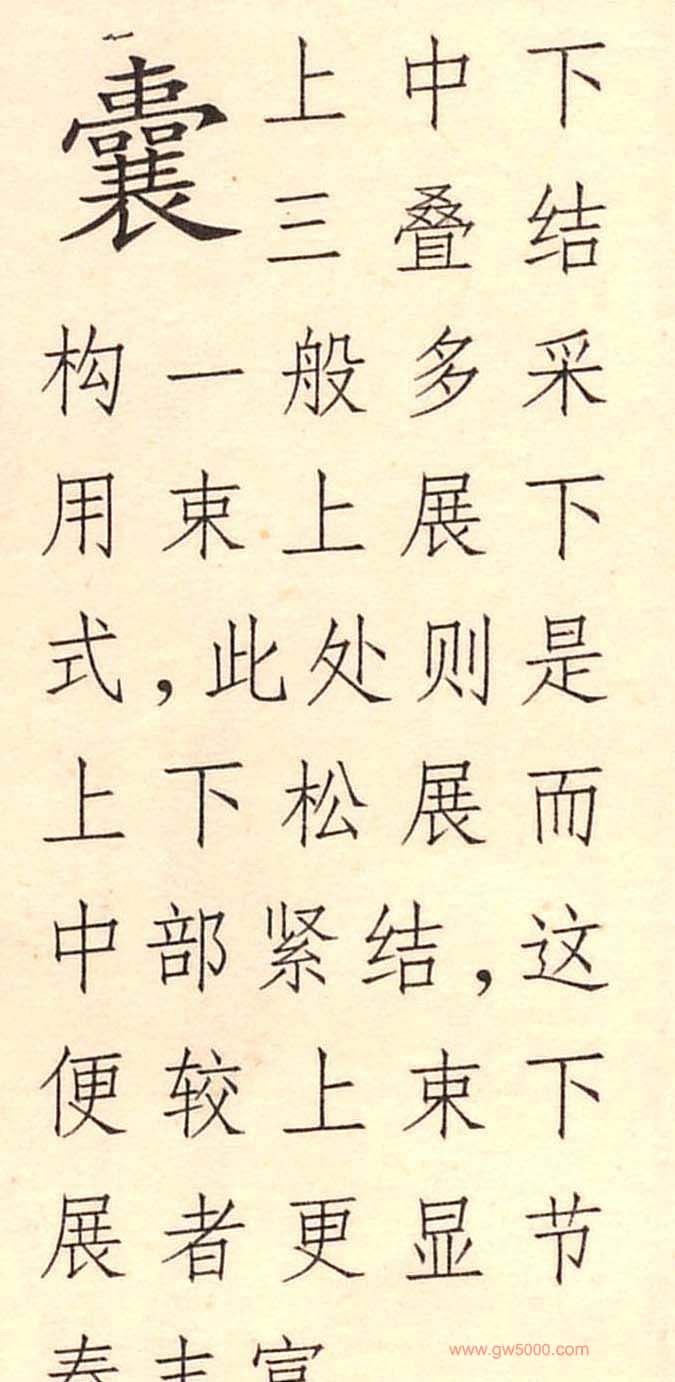 囊 上中下
三叠结
构一般多采
用束上展下
式，此处则是
上下松展而
中部紧结，这
便较上束下
展者更显节
奏丰富
www.gw5000.com